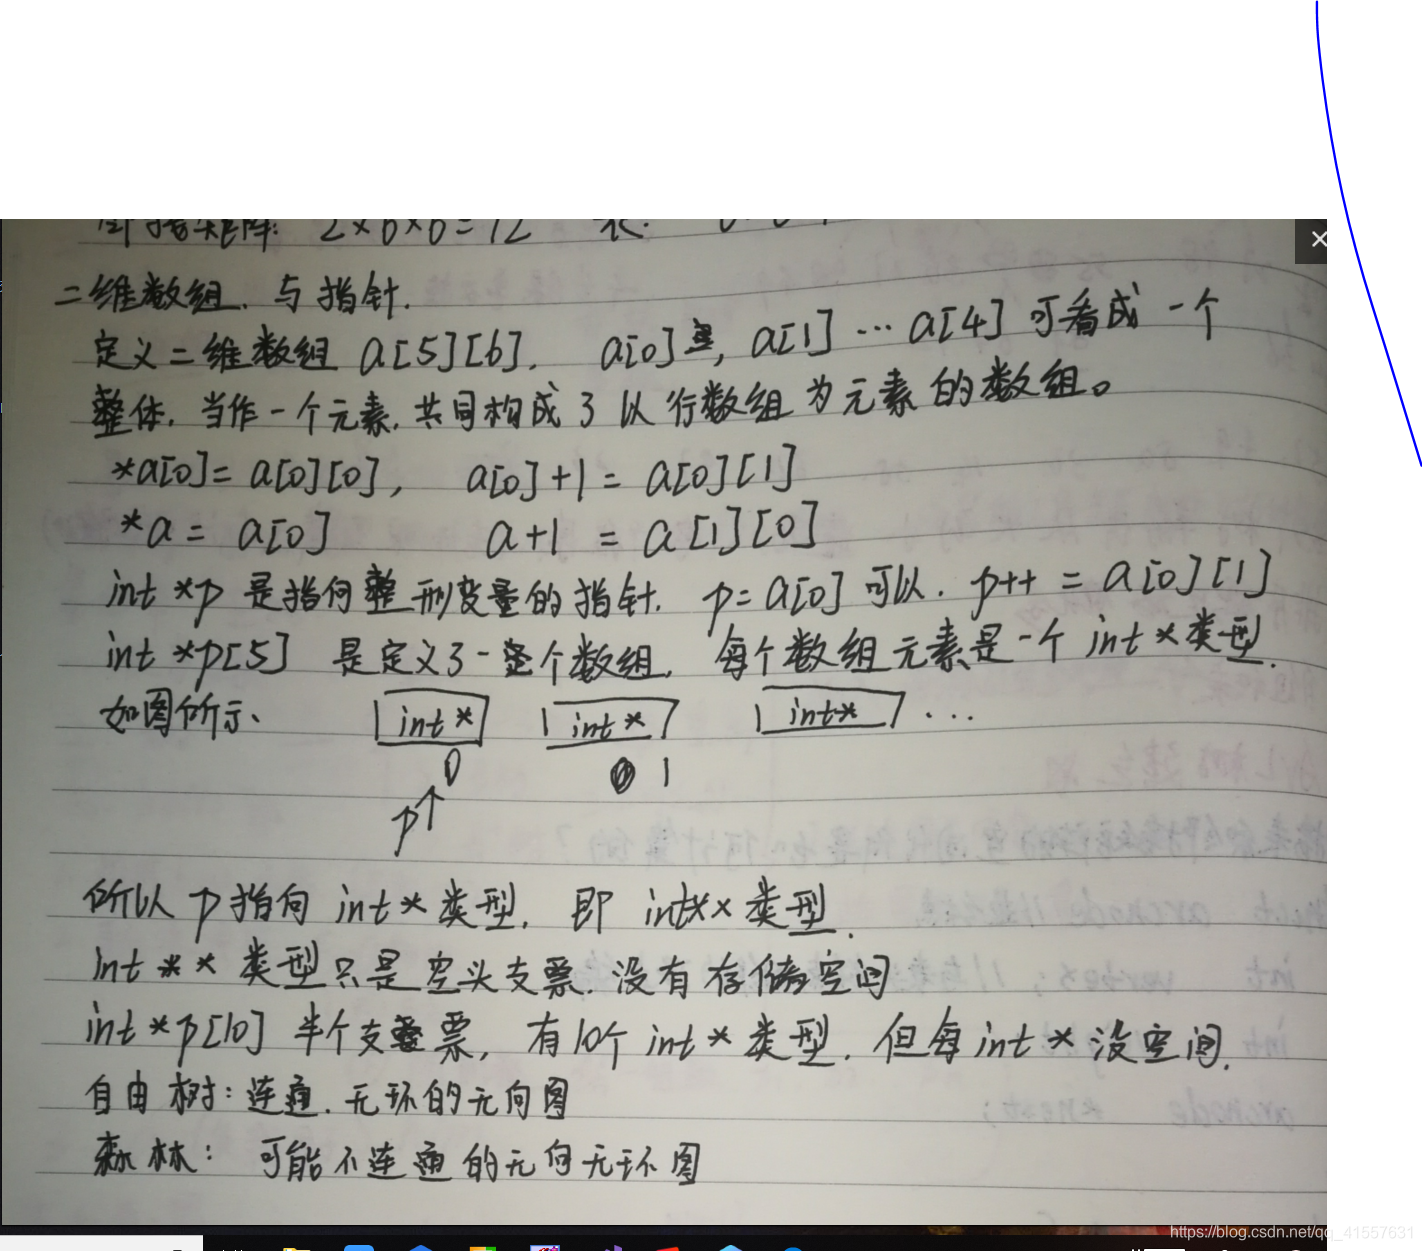 邻接矩阵: 2×6×6=72 表:
二维数组.与指针.
定义二维数组 a[5][6]. a[0], a[1]…a[4]可看成一个
整体.当作一个元素.共同构成了以行数组为元素的数组。
*a[0]=a[0][0], a[0]+1=a[0][1]
*a=a[0] a+1=a[1][0]
int *p 是指向整形变量的指针. p=a[0]可以. p++=a[0][1]
int *p[5] 是定义了一个数组, 每个数组元素是一个int*类型.
如图所示、 int* int* int* …
0 1
p
所以p指向 int*类型. 即 int** 类型.
int** 类型只是空头支票.没有存储空间
int*p[10] 半个支票, 有10个int*类型.但每int*没空间.
自由树:连通.无环的无向图
森林: 可能不连通的无向无环图
https://blog.csdn.net/qq_41557631